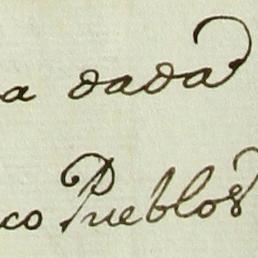 a dada
co Pueblos